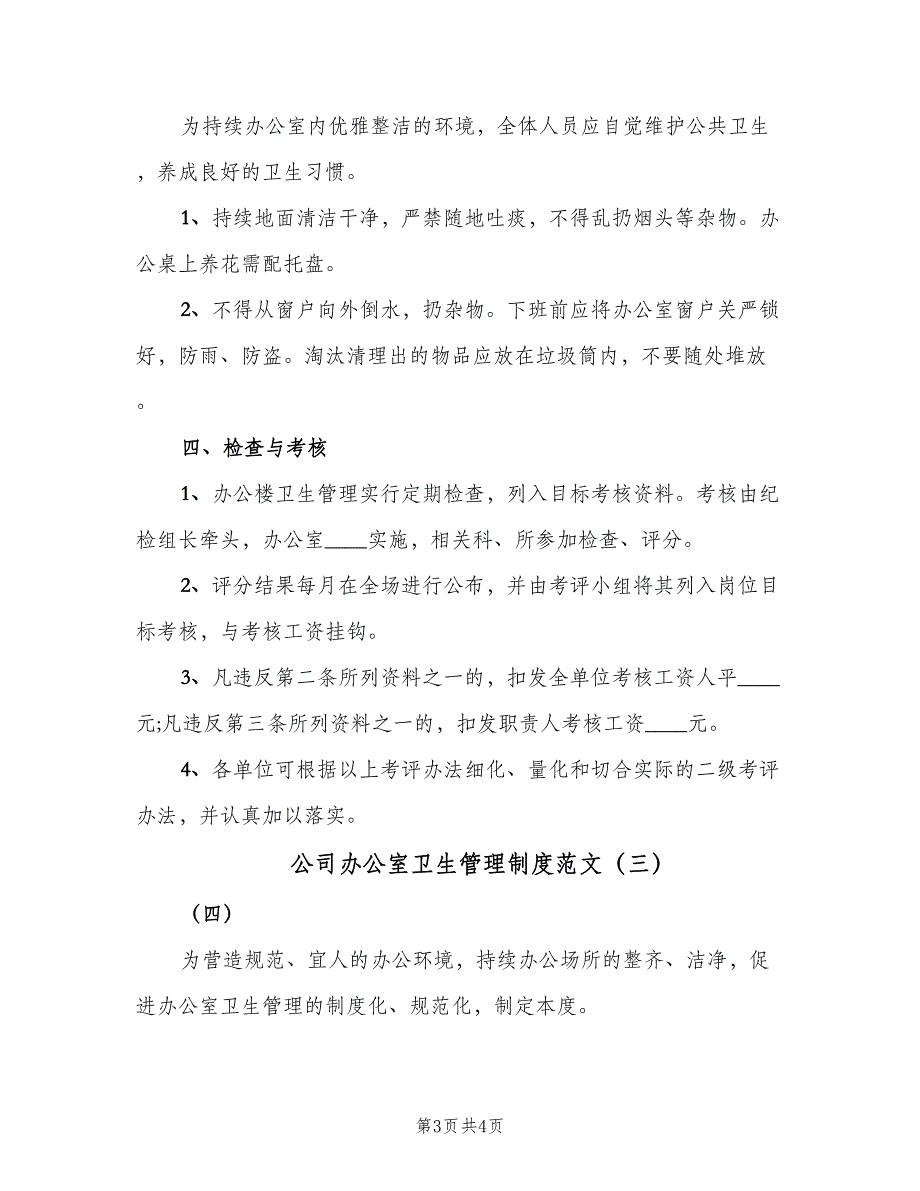 为持续办公室内优雅整洁的环境，全体人员应自觉维护公共卫生
，养成良好的卫生习惯。
1、持续地面清洁干净，严禁随地吐痰，不得乱扔烟头等杂物。办
公桌上养花需配托盘。
2、不得从窗户向外倒水，扔杂物。下班前应将办公室窗户关严锁
好，防雨、防盗。淘汰清理出的物品应放在垃圾筒内，不要随处堆放
。
四、检查与考核
1、办公楼卫生管理实行定期检查，列入目标考核资料。考核由纪
检组长牵头，办公室____实施，相关科、所参加检查、评分。
2、评分结果每月在全场进行公布，并由考评小组将其列入岗位目
标考核，与考核工资挂钩。
3、凡违反第二条所列资料之一的，扣发全单位考核工资人平____
元;凡违反第三条所列资料之一的，扣发职责人考核工资____元。
4、各单位可根据以上考评办法细化、量化和切合实际的二级考评
办法，并认真加以落实。
公司办公室卫生管理制度范文（三）
（四）
为营造规范、宜人的办公环境，持续办公场所的整齐、洁净，促
进办公室卫生管理的制度化、规范化，制定本度。
第3页共4页